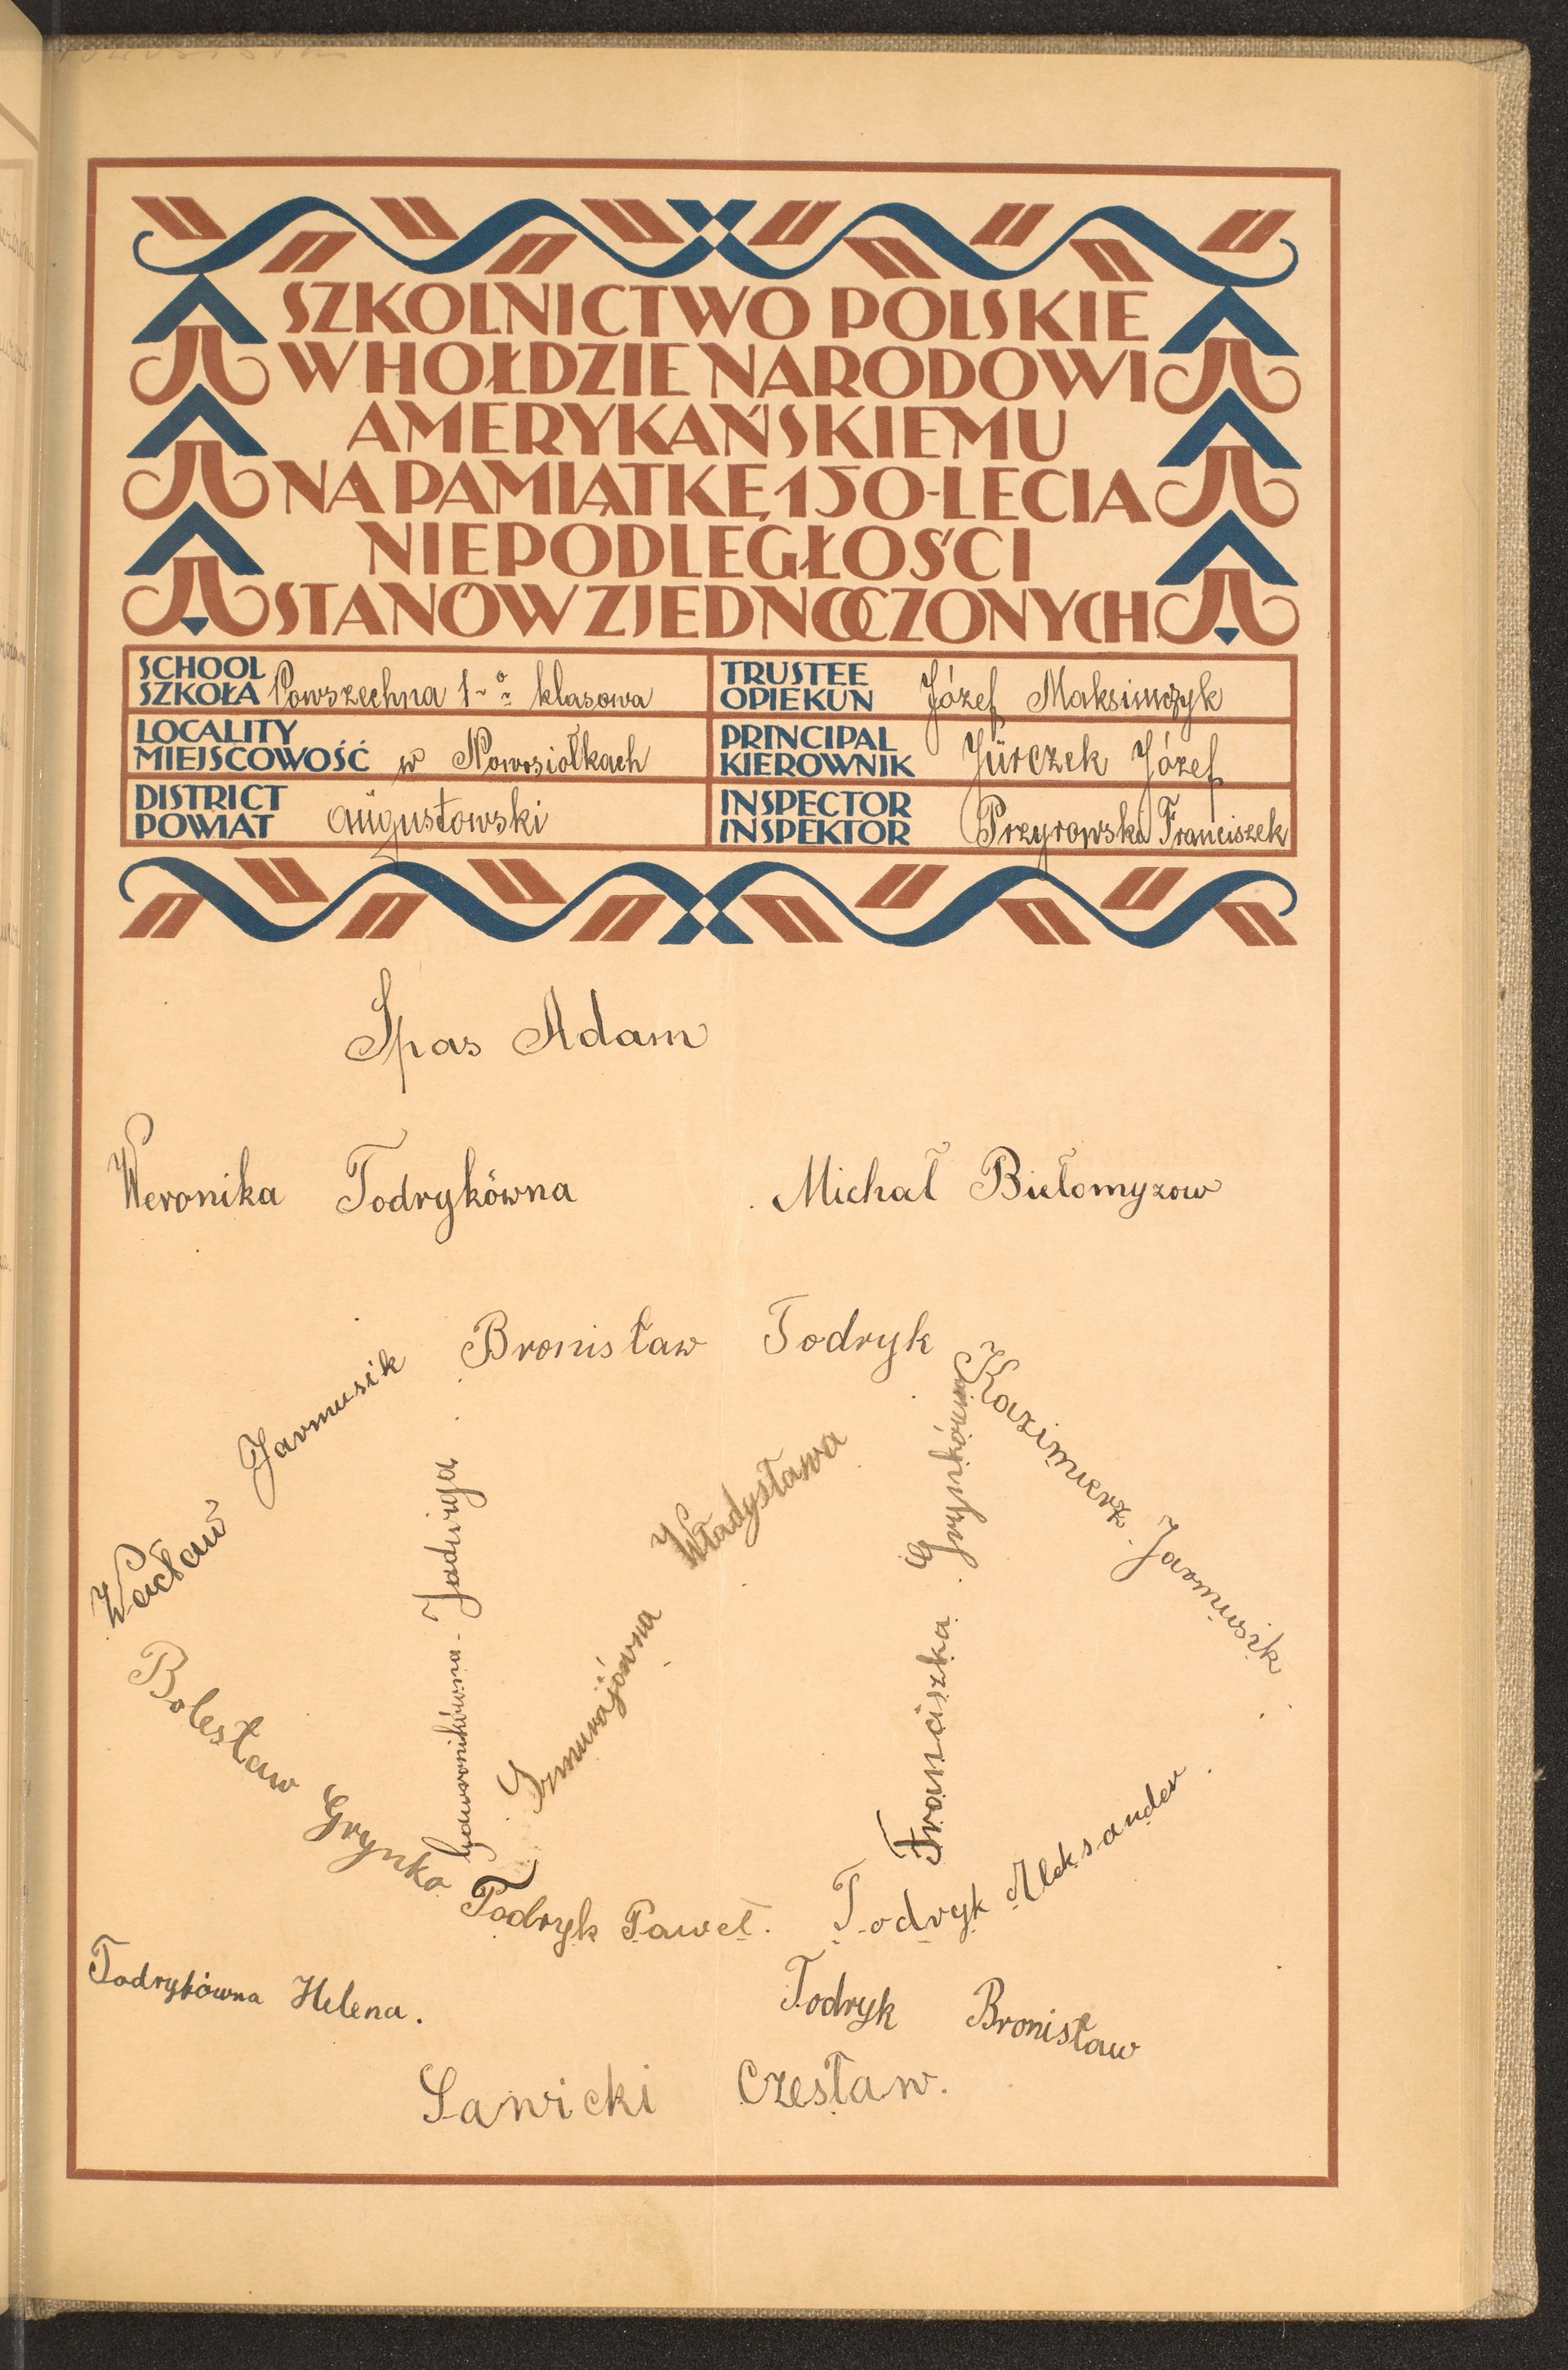 SZKOLNICTWO POLSKIE
W HOŁDZIE NARODOWI
AMERYKAŃSKIEMU
NA PAMIĄTKĘ 150-LECIA
NIEPODLEGŁOŚCI
STANÓW ZJEDNOCZONYCH
SCHOOL
SZKOŁA Powszechna 1-o klasowa
TRUSTEE
OPIEKUN Józef Maksimczyk
LOCALITY
MIEJSCOWOŚĆ w Nowosiołkach
PRINCIPAL
KIEROWNIK Jurczek Józef
DISTRICT
POWIAT augustowski
INSPECTOR
INSPEKTOR Przyrowski Franciszek
Spas Adam
Weronika Todrykówna
Michał Biełomyzow
Bronisław Todryk
Wacław Jarmusik
Kazimierz Jarmusik
Jadwiga
Władysława
Franciszka Grynkówna
Bolesław Grynko
Todryk Paweł.
Todryk Aleksander.
Todrykówna Helena.
Todryk Bronisław
Sawicki Czesław.